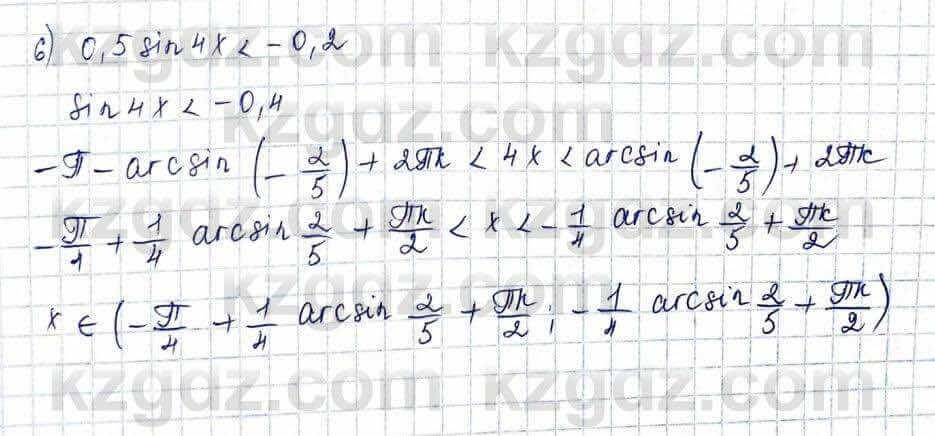 б) 0,5 sin 4x < -0,2
sin 4x < -0,4
-π - arcsin (-2/5) + 2πk < 4x < arcsin (-2/5) + 2πk
-π/4 + 1/4 arcsin 2/5 + πk/2 < x < -1/4 arcsin 2/5 + πk/2
x ∈ (-π/4 + 1/4 arcsin 2/5 + πk/2 ; -1/4 arcsin 2/5 + πk/2)
kzgdz.com kzgdz.com
kzgdz.com
kzgdz.com kzgdz.com
kzgdz.com
kzgdz.com kzgdz.com